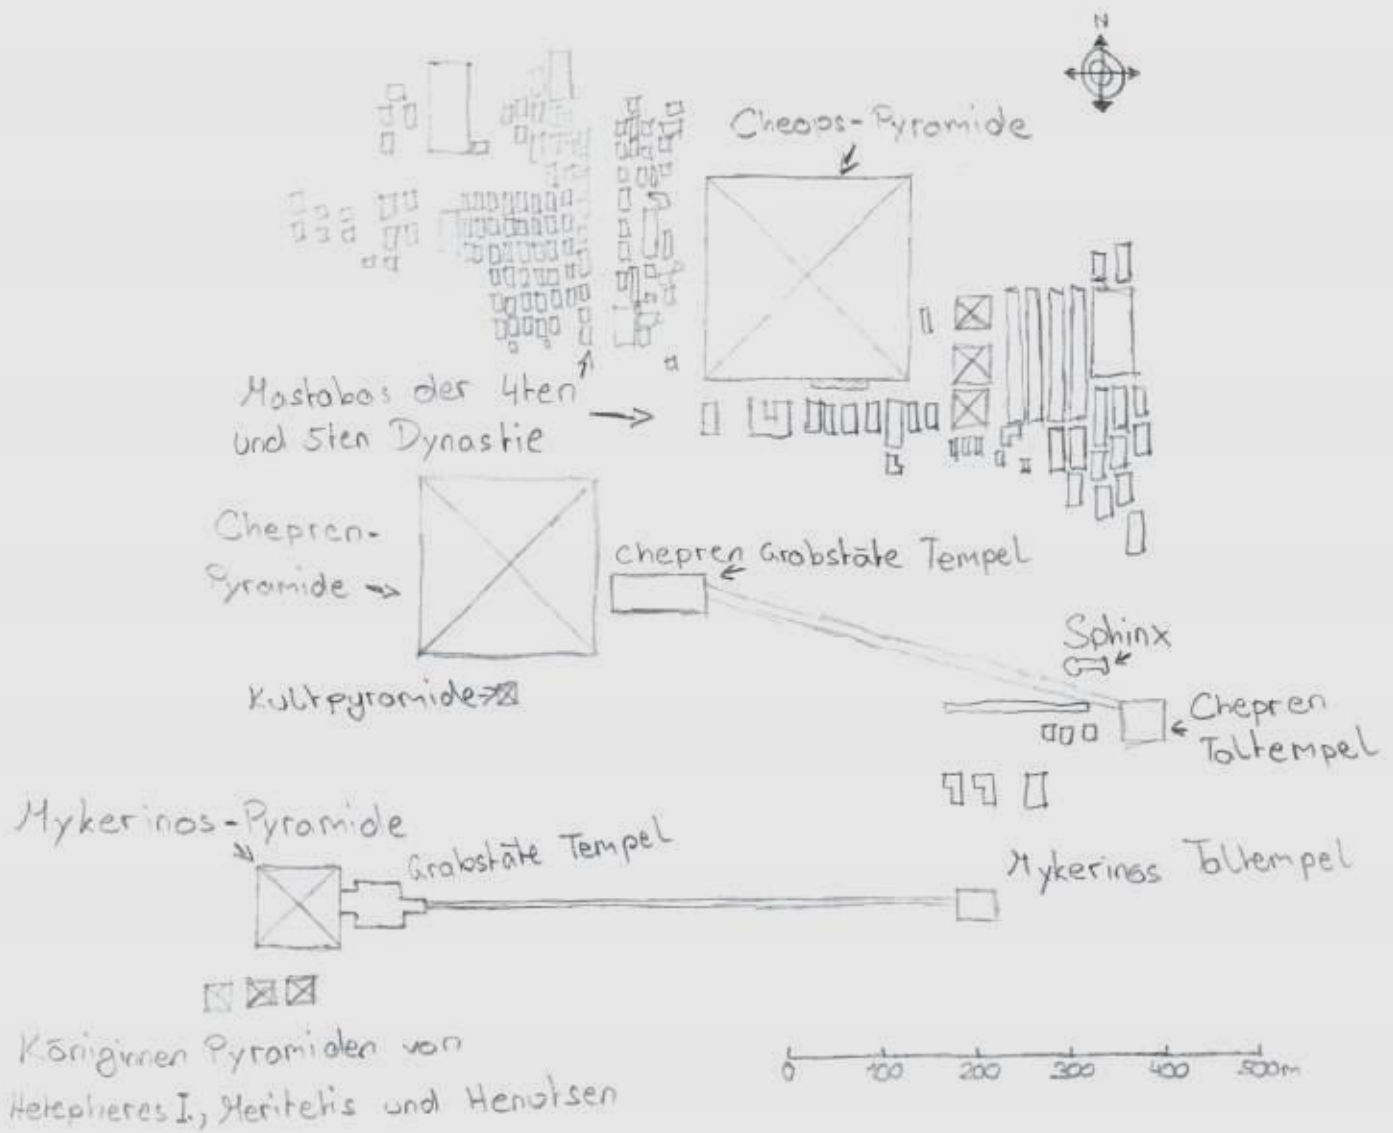 N
Cheops-Pyramide
Mastabas der 4ten
und 5ten Dynastie
Chepren-
Pyramide
Chepren Grabstäte Tempel
Sphinx
Kultpyramide
Chepren
Taltempel
Mykerinos-Pyramide
Grabstäte Tempel
Mykerinos Taltempel
Königinnen Pyramiden von
Hetepheres I., Meritetis und Henutsen
0 100 200 300 400 500m